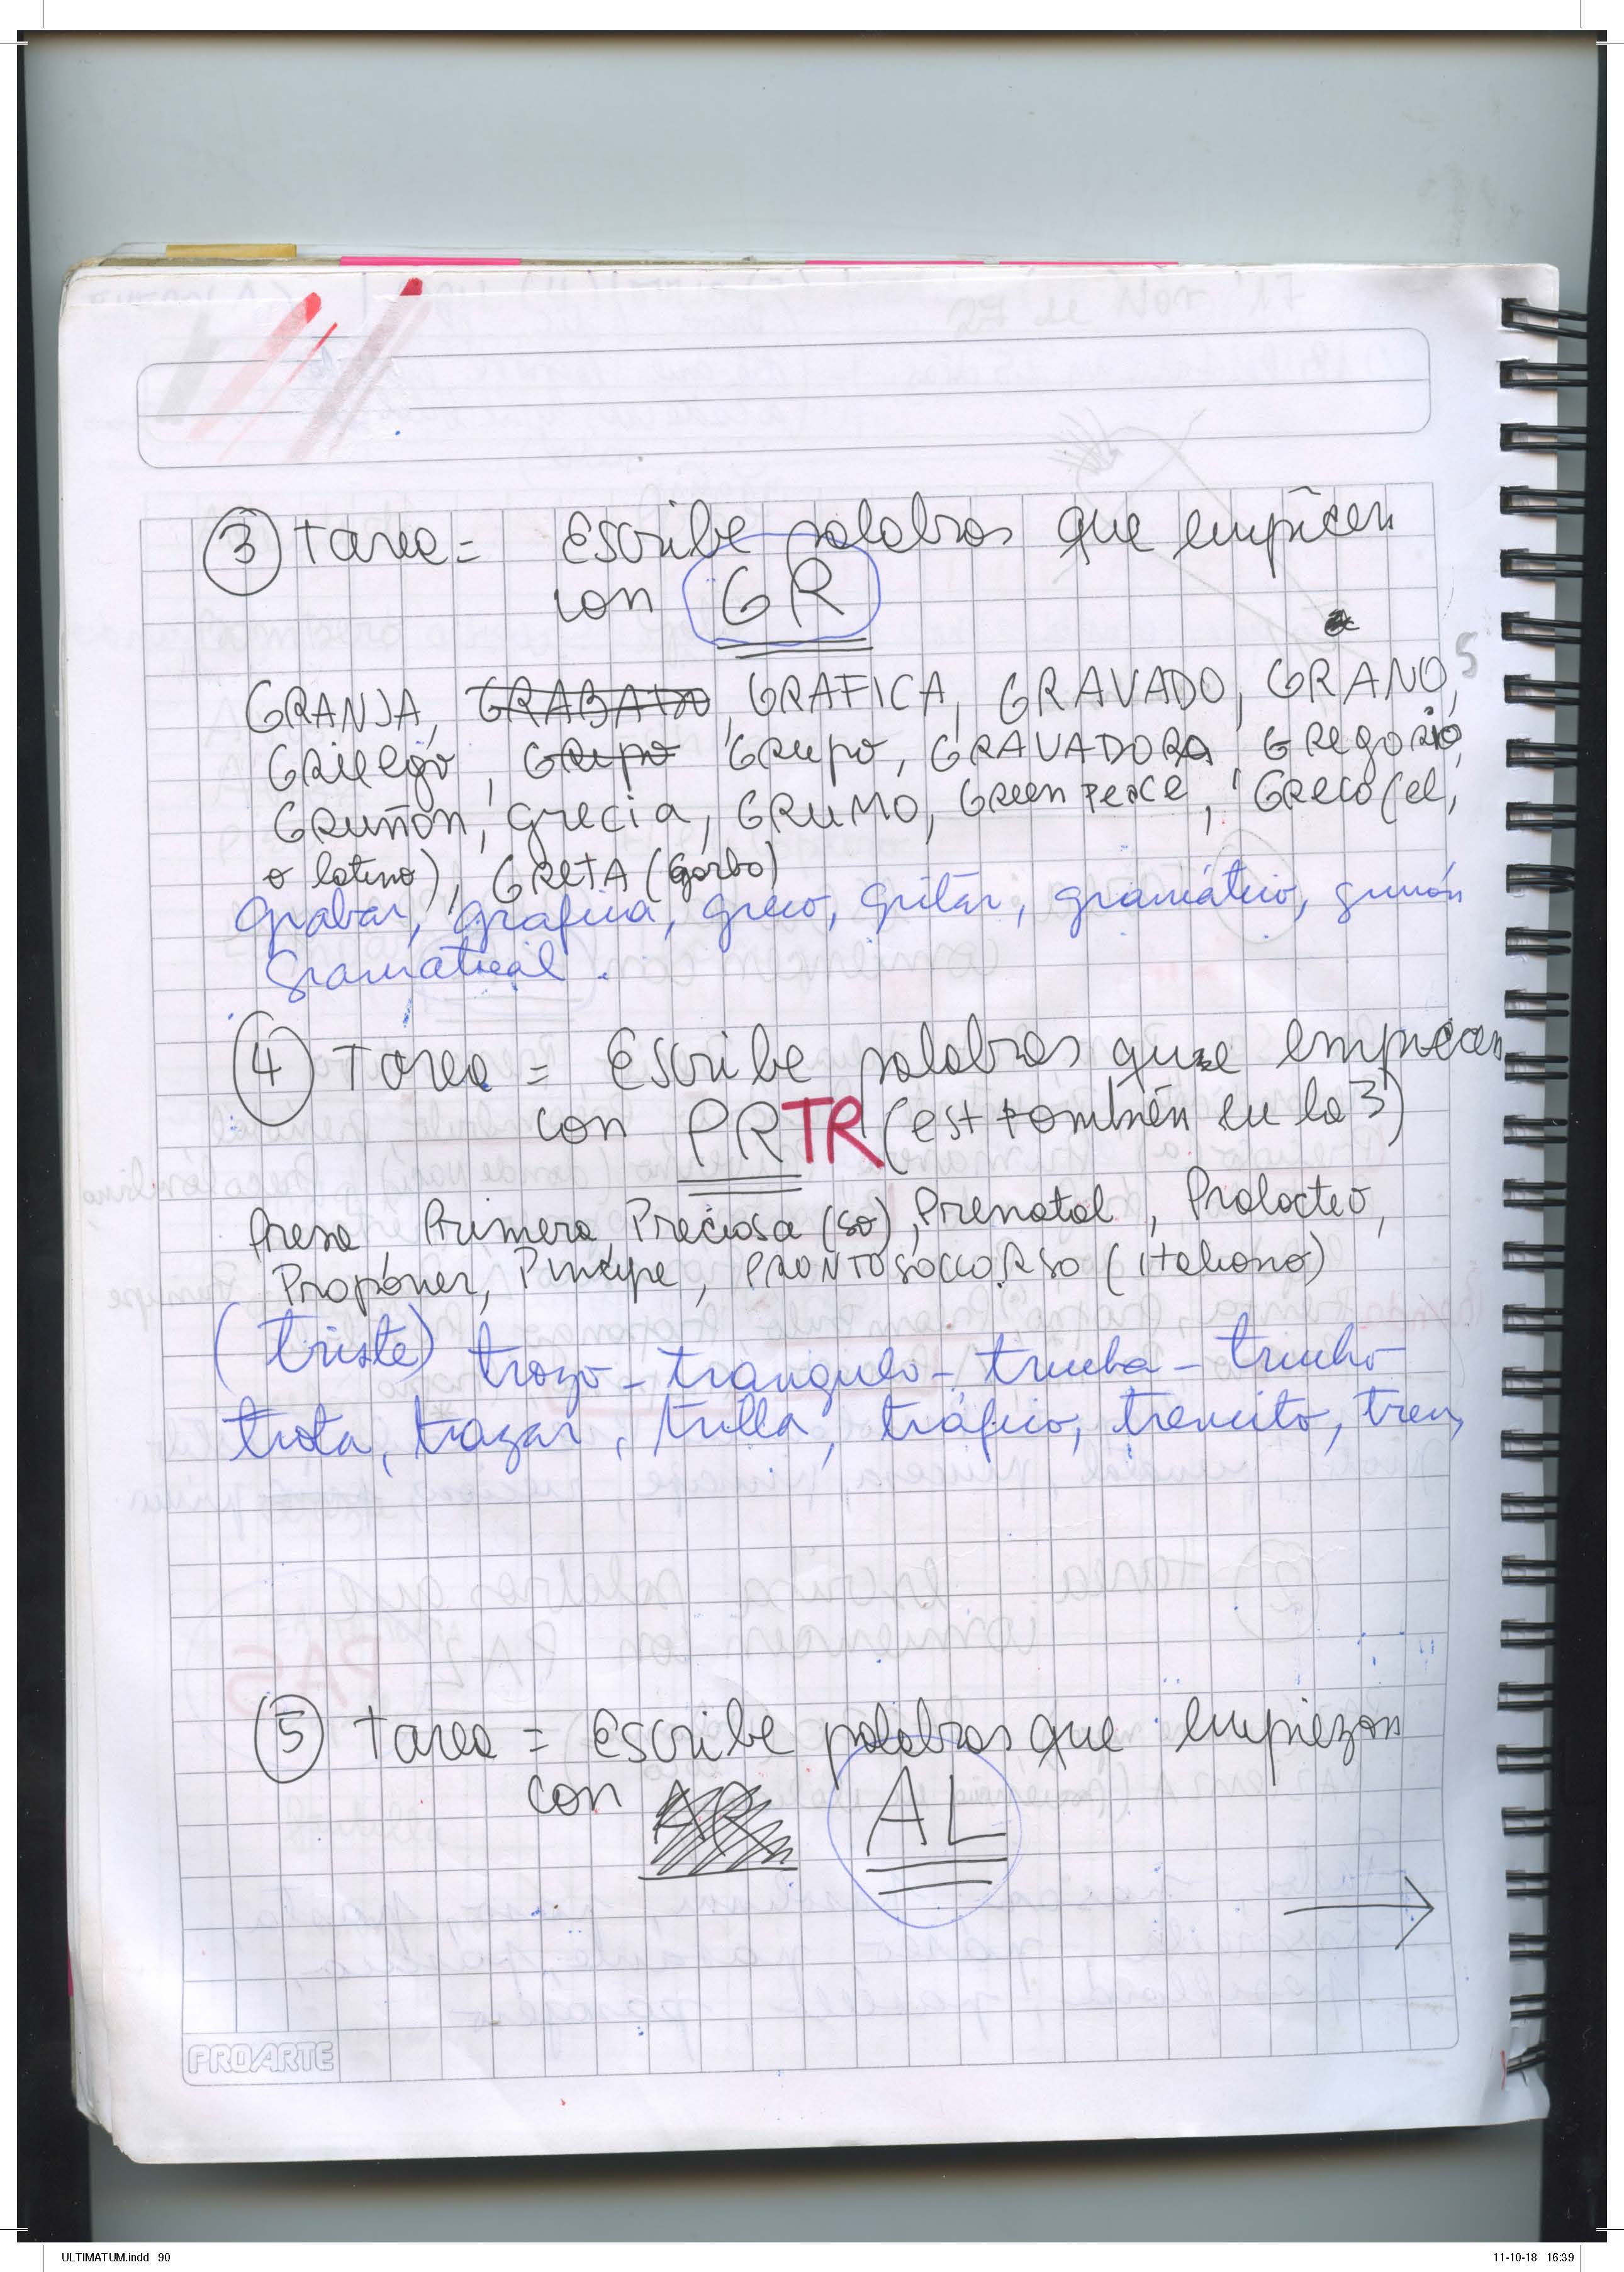 ③ tarea = Escribe palabras que empicen
con GR
GRANJA, GRABATO, GRAFICA, GRAVADO, GRANO, S
GRIEEGO, GRUPO GRUPO, GRAVADORA GREGORIO,
GRUÑON, GRECIA, GRUMO, GREEN PEACE, GRECO (el,
o latino), GRETA (Garbo)
grabar, grafica, greco, gritar, gramático, gruñón
gramatical.
④ tarea = Escribe palabras que empiecen
con PR TR (est también en la 3)
Presa, Primera, Preciosa (so), Prenatal, Prolacteo,
Propóner, Pincipe, PRONTOSOCCORSO (italiano)
(triste) trozo - triangulo - trucha - trucho
trota, trazar, trilla, tráfico, trencito, tren,
⑤ tarea = escribe palabras que empiezan
con AR AL
PROARTE
ULTIMATUM.indd 90
11-10-18 16:39